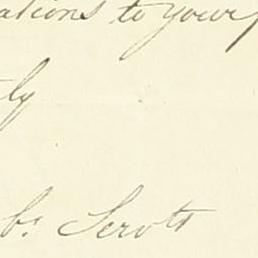 ations to your
ly
bt Servt